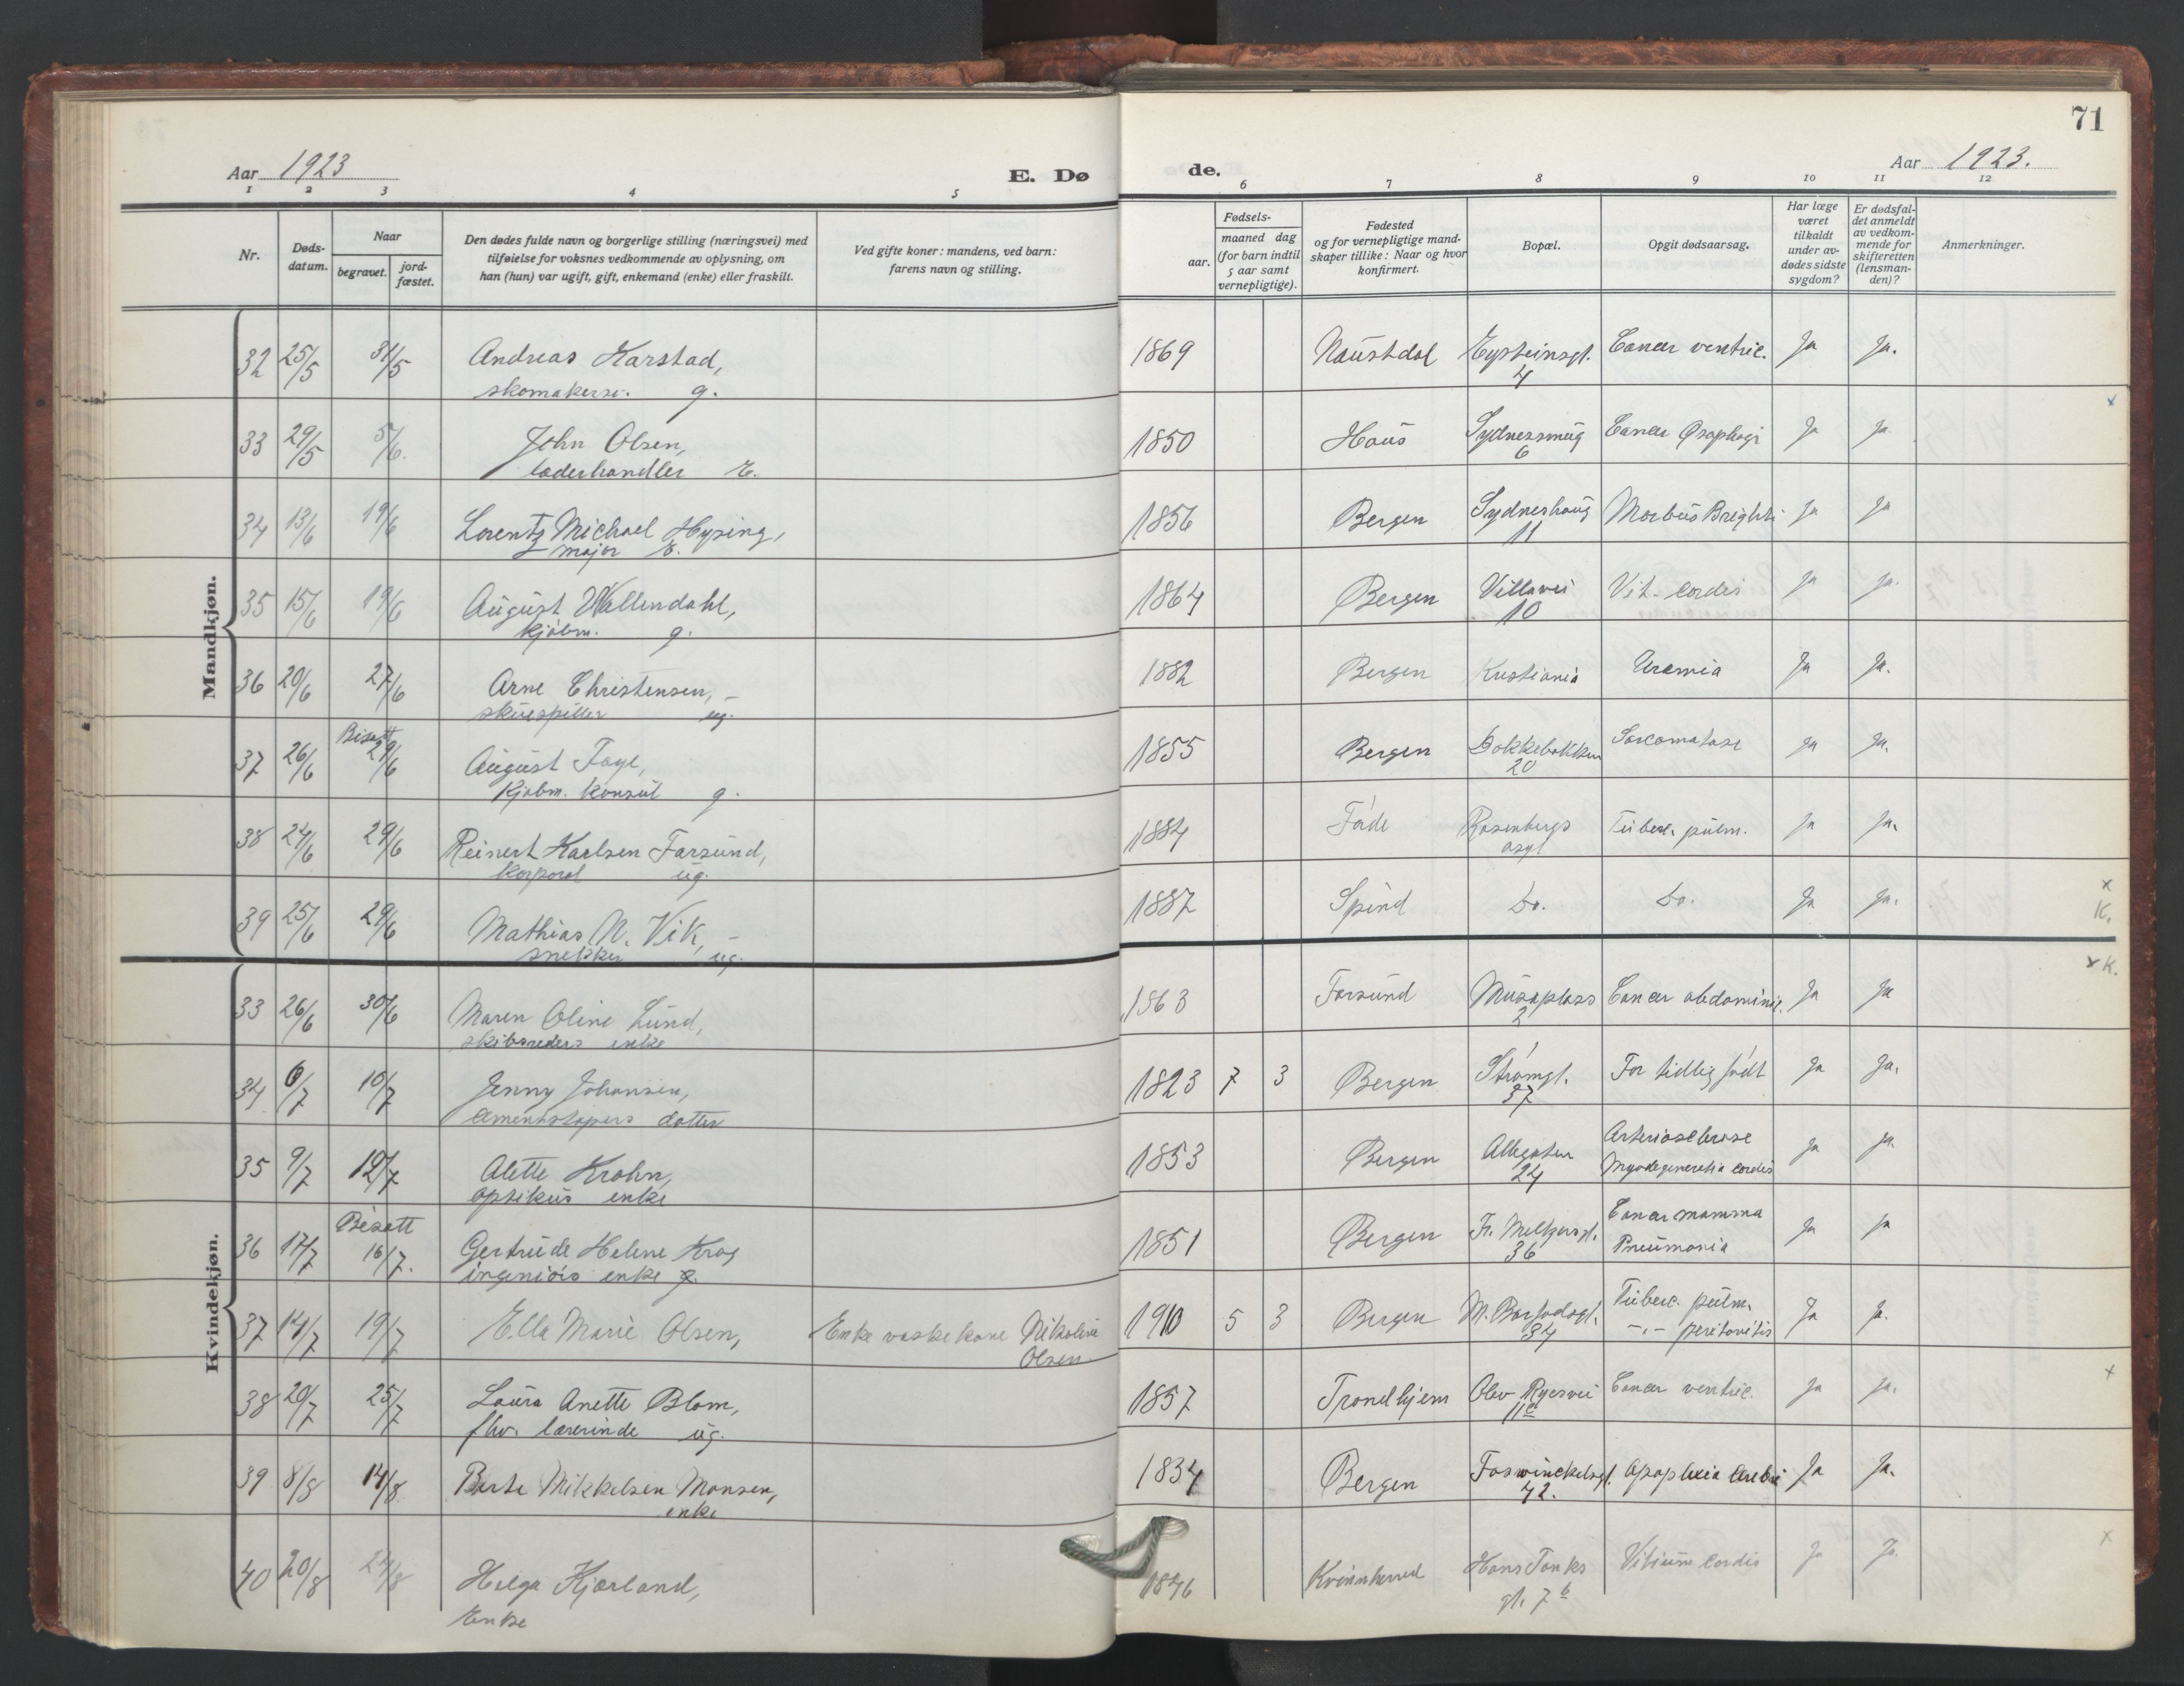 71
Aar 1923
E. Dø
de.
Aar 1923.
1 2 3 4 5 6 7 8 9 10 11 12
Nr.
Døds-
datum.
Naar
begravet.
jord-
fæstet.
Den dødes fulde navn og borgerlige stilling (næringsvei) med
tilføielse for voksnes vedkommende av oplysning, om
han (hun) var ugift, gift, enkemand (enke) eller fraskilt.
Ved gifte koner: mandens, ved barn:
farens navn og stilling.
aar.
Fødsels-
maaned dag
(for barn indtil
5 aar samt
vernepligtige).
Fødested
og for vernepligtige mand-
skaper tillike: Naar og hvor
konfirmert.
Bopæl.
Opgit dødsaarsag.
Har læge
været
tilkaldt
under av-
dødes sidste
sygdom?
Er dødsfal-
det anmeldt
av vedkom-
mende for
skifteretten
(lensman-
den)?
Anmerkninger.
Mandkjøn.
32 25/5 31/5 Andreas Karstad, 1869 Naustdal Eysteinsgt. Cancer ventric. Ja Ja.
skomakersv. g. 4
x
33 29/5 5/6. John Olsen, 1850 Haus Sydnessmug Cancer Øsophagi Ja Ja
læderhandler E. 6
34 13/6 19/6 Lorentz Michael Hysing, 1856 Bergen Sydneshaug Morbus Brighti Ja Ja
major E. 11
35 15/6 19/6 August Wallendahl, 1864 Bergen Villavei Vit. cordis Ja Ja.
kjøbm. g. 10
36 20/6 27/6 Arne Christensen, 1882 Bergen Kristiania Uremia Ja Ja.
skuespiller ug.
Bisatt
37 26/6 29/6 August Faye, 1855 Bergen Dokkebakken Sarcomatose Ja Ja.
Kjøbm. konsul g. 20
38 24/6 29/6 Reinert Karlsen Farsund, 1884 Rosenbergs Tuberc. pulm. Ja Ja.
korporal ug. asyl
39 25/6 29/6 Mathias N. Vik, 1887 Spind Do. Do. Ja Ja. x K.
snekker ug.
Kvindekjøn.
x K.
33 26/6 30/6 Maren Oline Lund, 1863 Farsund Muséplass Cancer abdominic. Ja Ja
skibsreders enke 2
34 6/7 10/7 Jenny Johansen, 1823 7 3 Bergen Strømgt. For tidlig født Ja Ja.
cementstøpers datter 37
35 9/7 12/7 Alette Krohn, 1853 Bergen Allegaten Arteriosclerose Ja Ja.
optikus enke 24 Myodegeneratio cordis
Bisatt
36 17/7 16/7. Gertrude Helene Krag 1851 Bergen Fr. Meltzersgt. Cancer mamma Ja Ja
ingeniørs enke 36 Pneumonia
37 14/7 19/7 Ella Marie Olsen, Enke vaskekone Nikoline 1910 5 3 Bergen M. Barfodsgt. Tuberc. pulm. Ja Ja.
Olsen. 34 -"- peritonitis
x
38 20/7 25/7 Laura Anette Blom, 1857 Trondhjem Olav Ryesvei Cancer ventric. Ja Ja.
fhv. lærerinde ug. 11c
39 8/8 14/8 Berte Mikkelsen Monsen, 1834 Bergen Foswinckelsgt. Apoplexia cerebri Ja Ja.
enke 42.
x
40 20/8 24/8 Helga Kjærland, 1846 Kvinnherred Hans Tanks Vitium cordis Ja Ja.
Enke gt. 7b